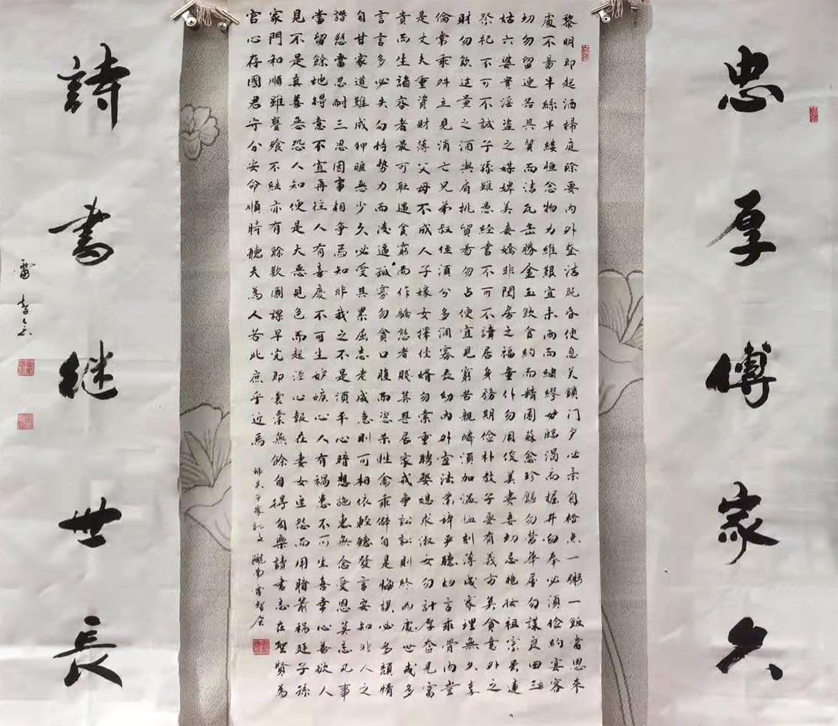 忠厚傅家久
黎明即起洒掃庭除要内外整洁既昏便息关鎖门户必亲自检点一粥一飯當思来
處不易半絲半縷恒念物力維艱宜未雨而綢繆毋臨渴而掘井自奉必須儉約宴客
切勿留連器具質而洁瓦缶勝金玉飲食約而精園蔬愈珍饈勿营华屋勿謀良田三
姑六婆實淫盗之媒婢美妾嬌非閨房之福童仆勿用俊美妻妾切忌艳妆祖宗虽遠
祭祀不可不誠子孫雖愚經書不可不讀居身務期儉朴教子要有義方莫貪意外之
財勿飲过量之酒與肩挑貿易勿占便宜見窮苦親鄰須加温恤刻薄成家理無久享
倫常乖舛立見消亡兄弟叔侄須分多潤寡長幼内外宜法肅辞严聽妇言乖骨肉豈
是丈夫重資財薄父母不成人子嫁女擇佳婿勿索重聘娶媳求淑女勿計厚奩見富
貴而生諂容者最可耻遇貧窮而作驕態者賤莫甚居家戒争訟訟則終凶處世戒多
言言多必失勿恃勢力而凌逼孤寡勿貪口腹而恣杀牲禽乖僻自是悔誤必多頹惰
自甘家道難成狎昵恶少久必受其累屈志老成急則可相依輕聽發言安知非人之
譖愬當忍耐三思因事相争焉知非我之不是須平心暗想施惠無念受恩莫忘凡事
當留餘地得意不宜再往人有喜慶不可生妒嫉心人有禍患不可生喜幸心善欲人
見不是真善恶恐人知便是大恶見色而起淫心報在妻女匿怨而用暗箭禍延子孫
家門和順雖饔飧不继亦有餘歡國課早完即囊橐無餘自得至樂讀書志在聖賢為
官心存國君守分安命順時聽天為人若此庶乎近焉
隴南雷
詩書繼世長
雷